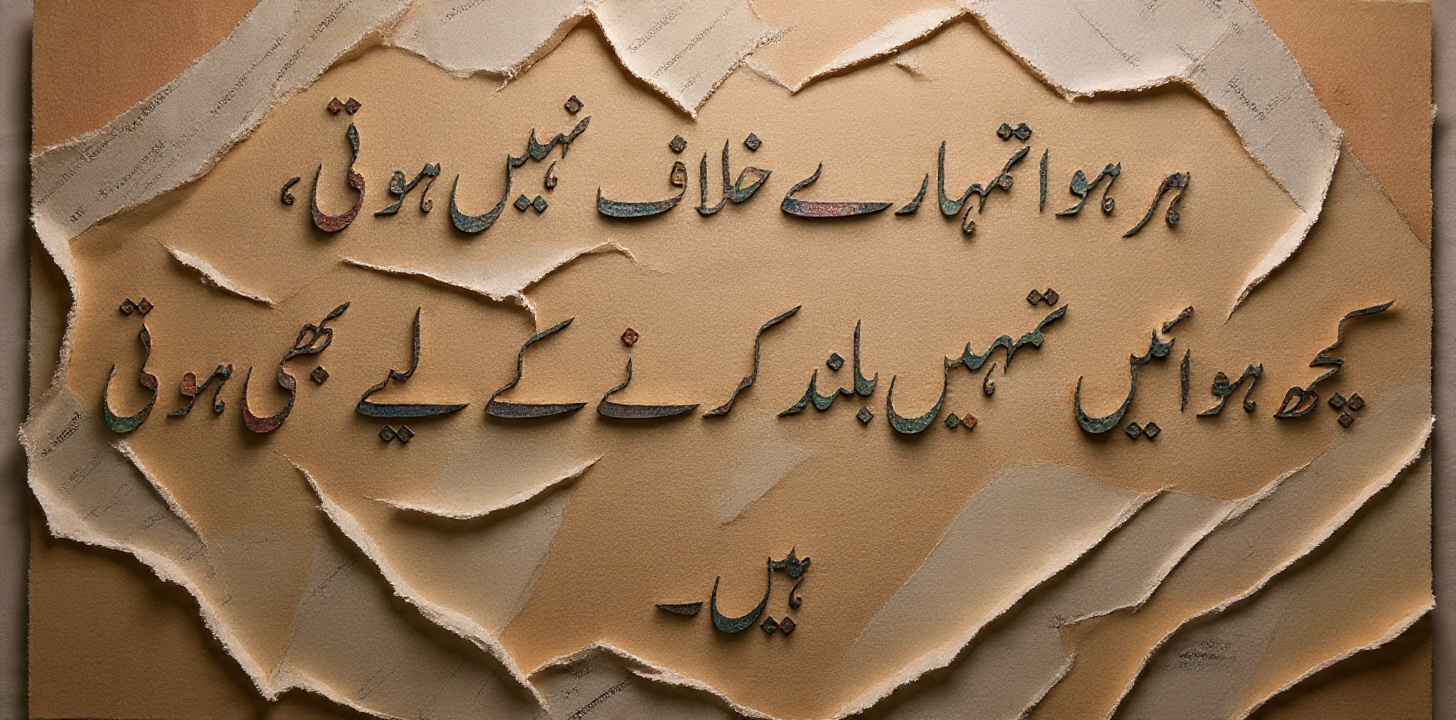 ہر ہوا تمہارے خلاف نہیں ہوتی،
کچھ ہوائیں تمہیں بلند کرنے کے لیے بھی ہوتی
ہیں۔